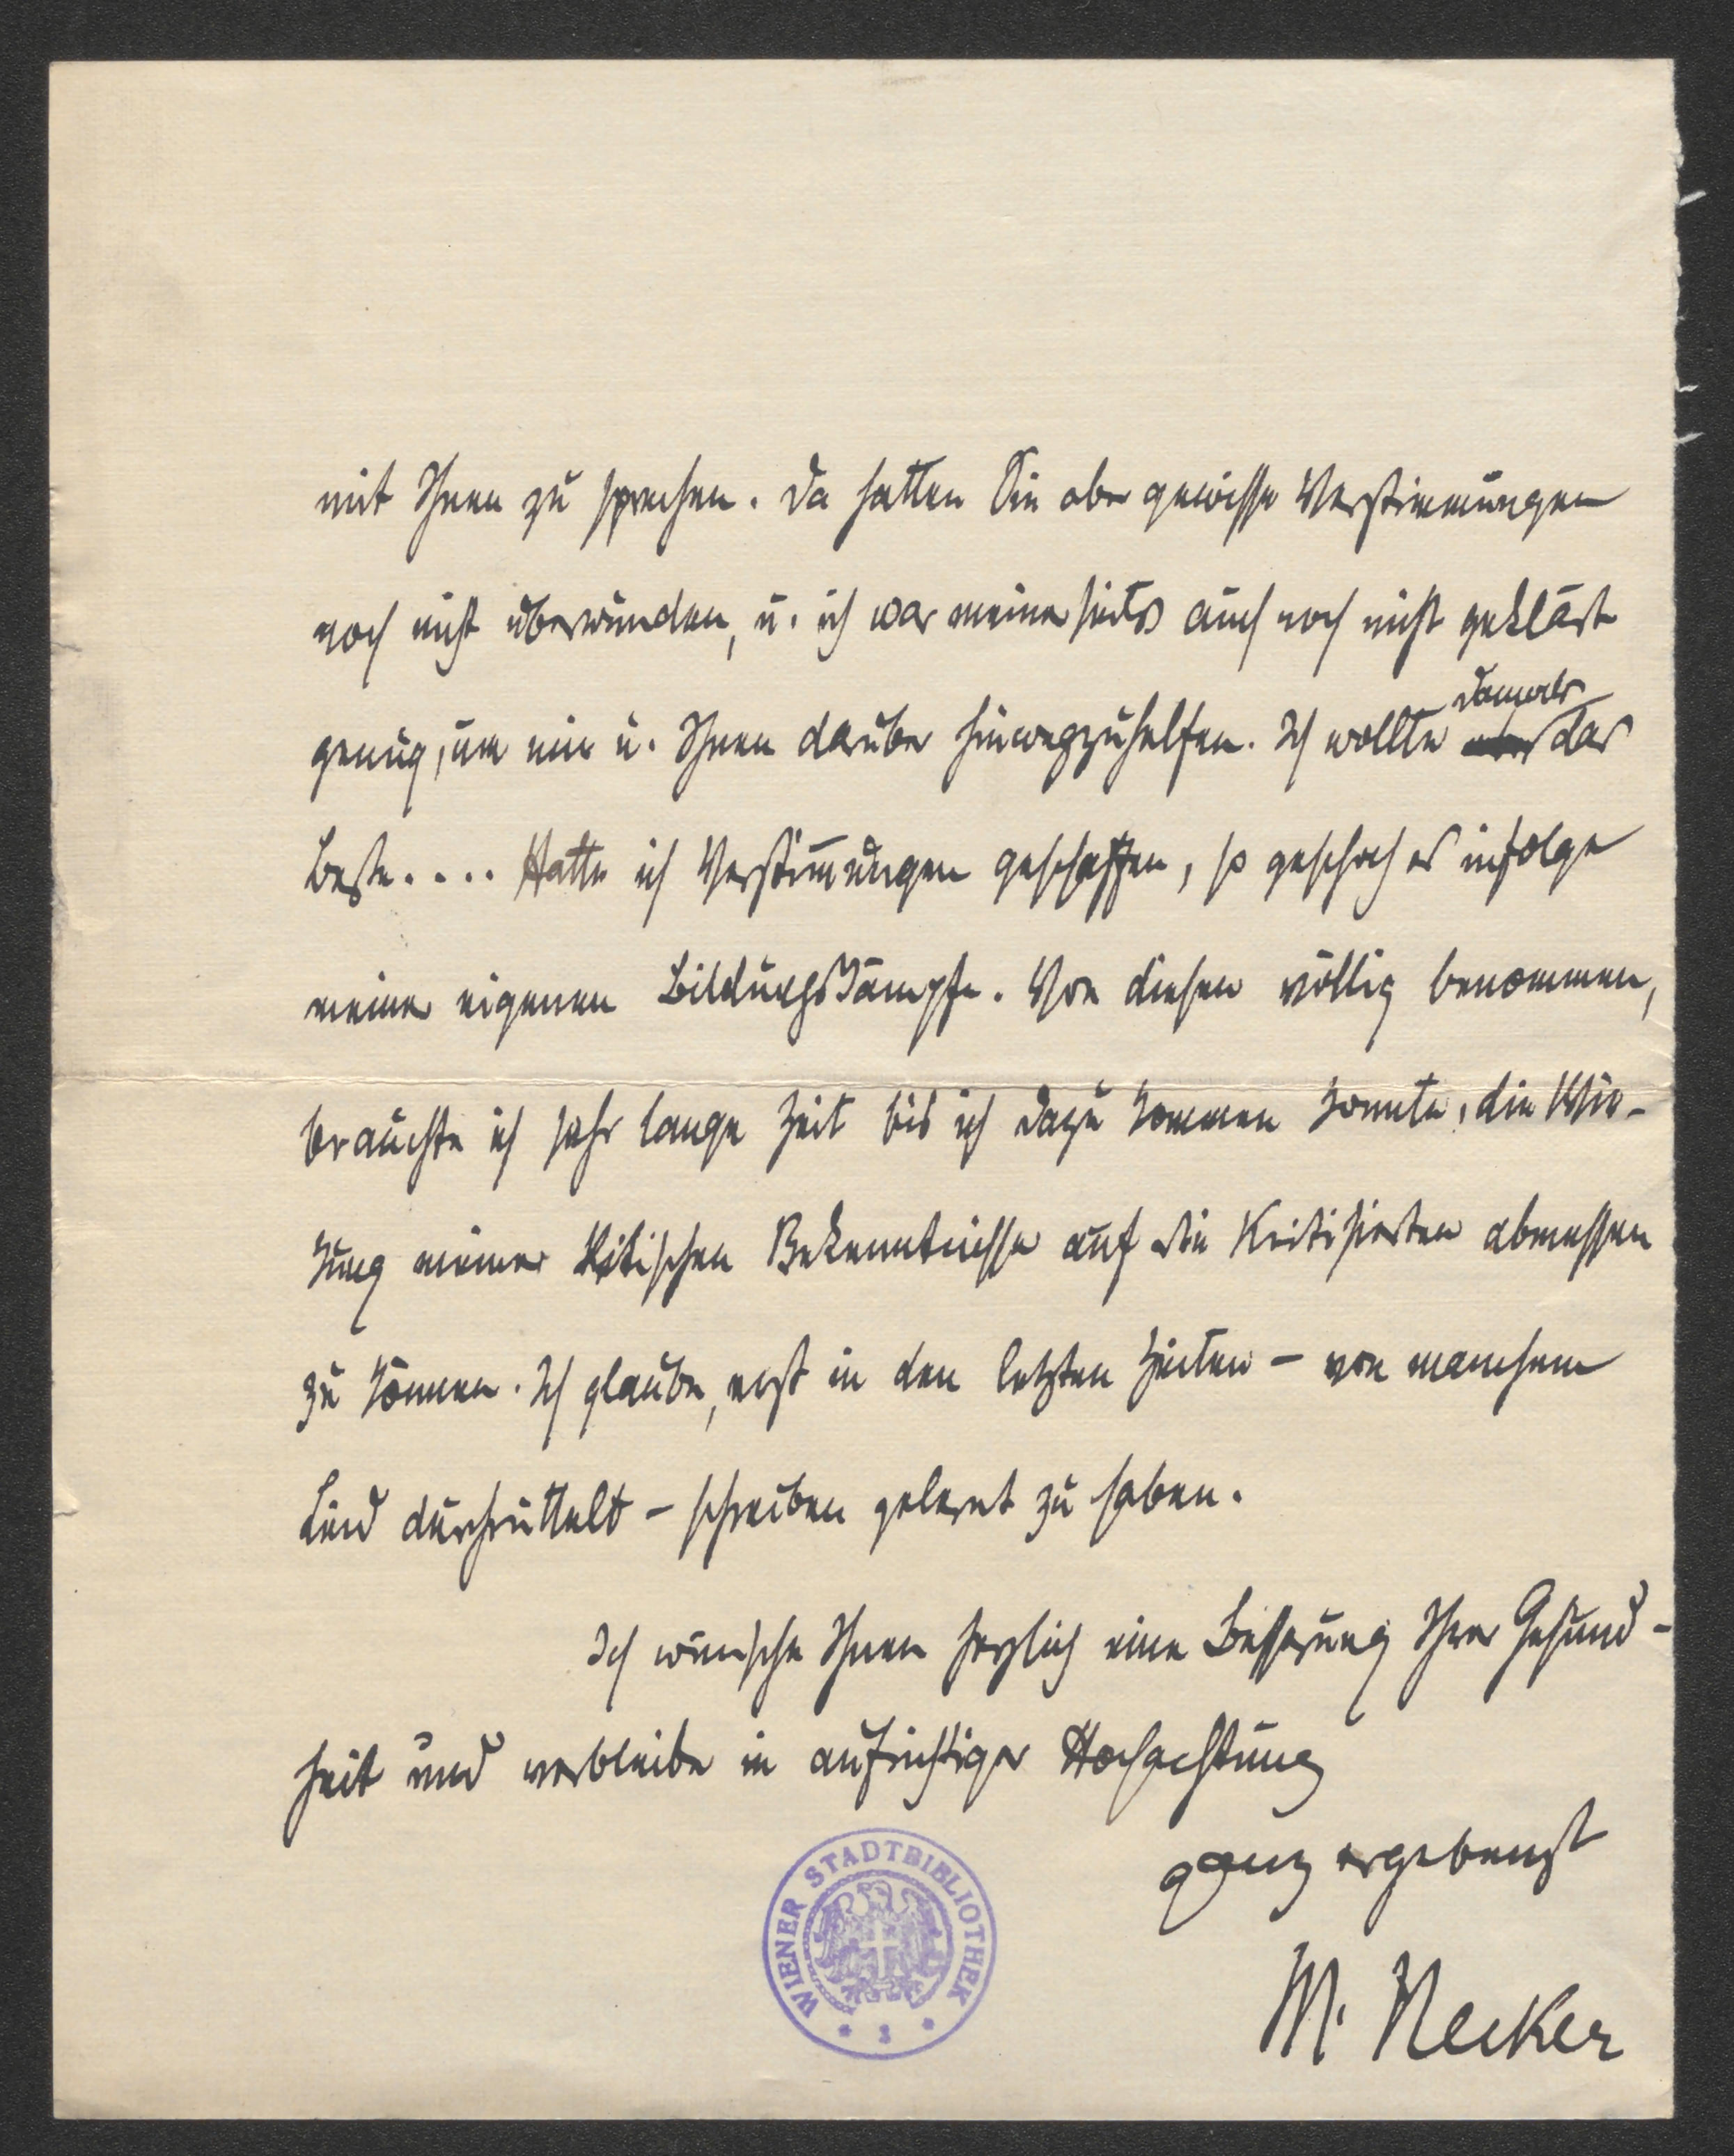 mit Ihnen zu sprechen. Da hatten Sie aber gewisse Verstimmungen
noch nicht überwunden, u. ich war meinerseits auch noch nicht geklärt
damals
genug, um mir u. Ihnen darüber hinwegzuhelfen. Ich wollte das
Beste.... Hatte ich Verstim̅ungen geschaffen, so geschah es infolge
meiner eigenen Bildungskämpfe. Von diesen völlig benommen,
brauchte ich sehr lange Zeit bis ich dazu kommen konnte, die Wir-
kung meiner kritischen Bekenntnisse auf die Kritisierten abmessen
zu können. Ich glaube, erst in den letzten Zeiten – von manchem
Leid durchrüttelt – schreiben gelernt zu haben.
Ich wünsche Ihnen herzlich eine Besserung Ihrer Gesund-
heit und verbleibe in aufrichtiger Hochachtung
ganz ergebenst
M. Necker
WIENER STADTBIBLIOTHEK